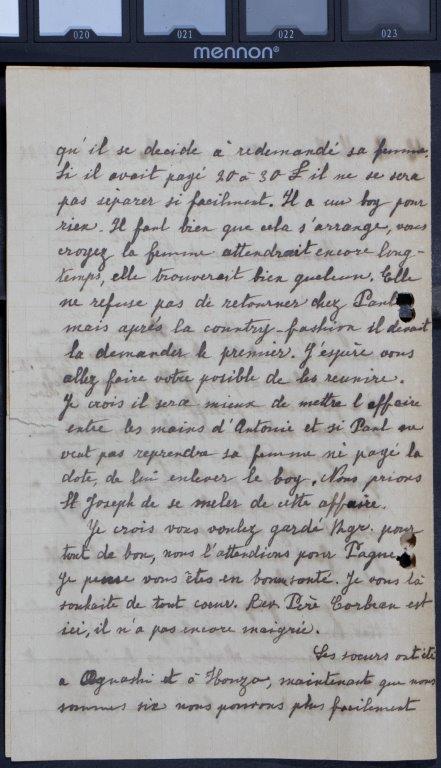 020 021 022 023
mennon®
qu'il se decide à redemandé sa femme.
Si il avait payé 20 à 30 £ il ne se sera
pas séparer si facilment. Il a un boy pour
rien. Il faut bien que cela s'arrange, vous
croyez la femme attendrait encore long-
temps, elle trouverait bien quelcun. Elle
ne refuse pas de retourner chez Paul
mais aprés la country-fashion il devait
la demander le premier. J'espère vous
allez faire votre posible de les reunire.
Je crois il sera mieux de mettre l'affaire
entre les mains d'Antonie et si Paul ne
veut pas reprendre sa femme ni payé la
dote, de lui enlever le boy. Nous prions
St Joseph de se meler de cette affaire.
Je crois vous voulez gardé Mgr. pour
tout de bon, nous l'attendions pour Pagues
Je pense vous êtes en bonne santé. Je vous la
souhaite de tout cœur. Rev. Père Corbeau est
ici, il n'a pas encore maigrié.
Les sœurs ont été
a Oguashi et à Ibonza, maintenant que nous
sommes six nous pouvons plus facilement